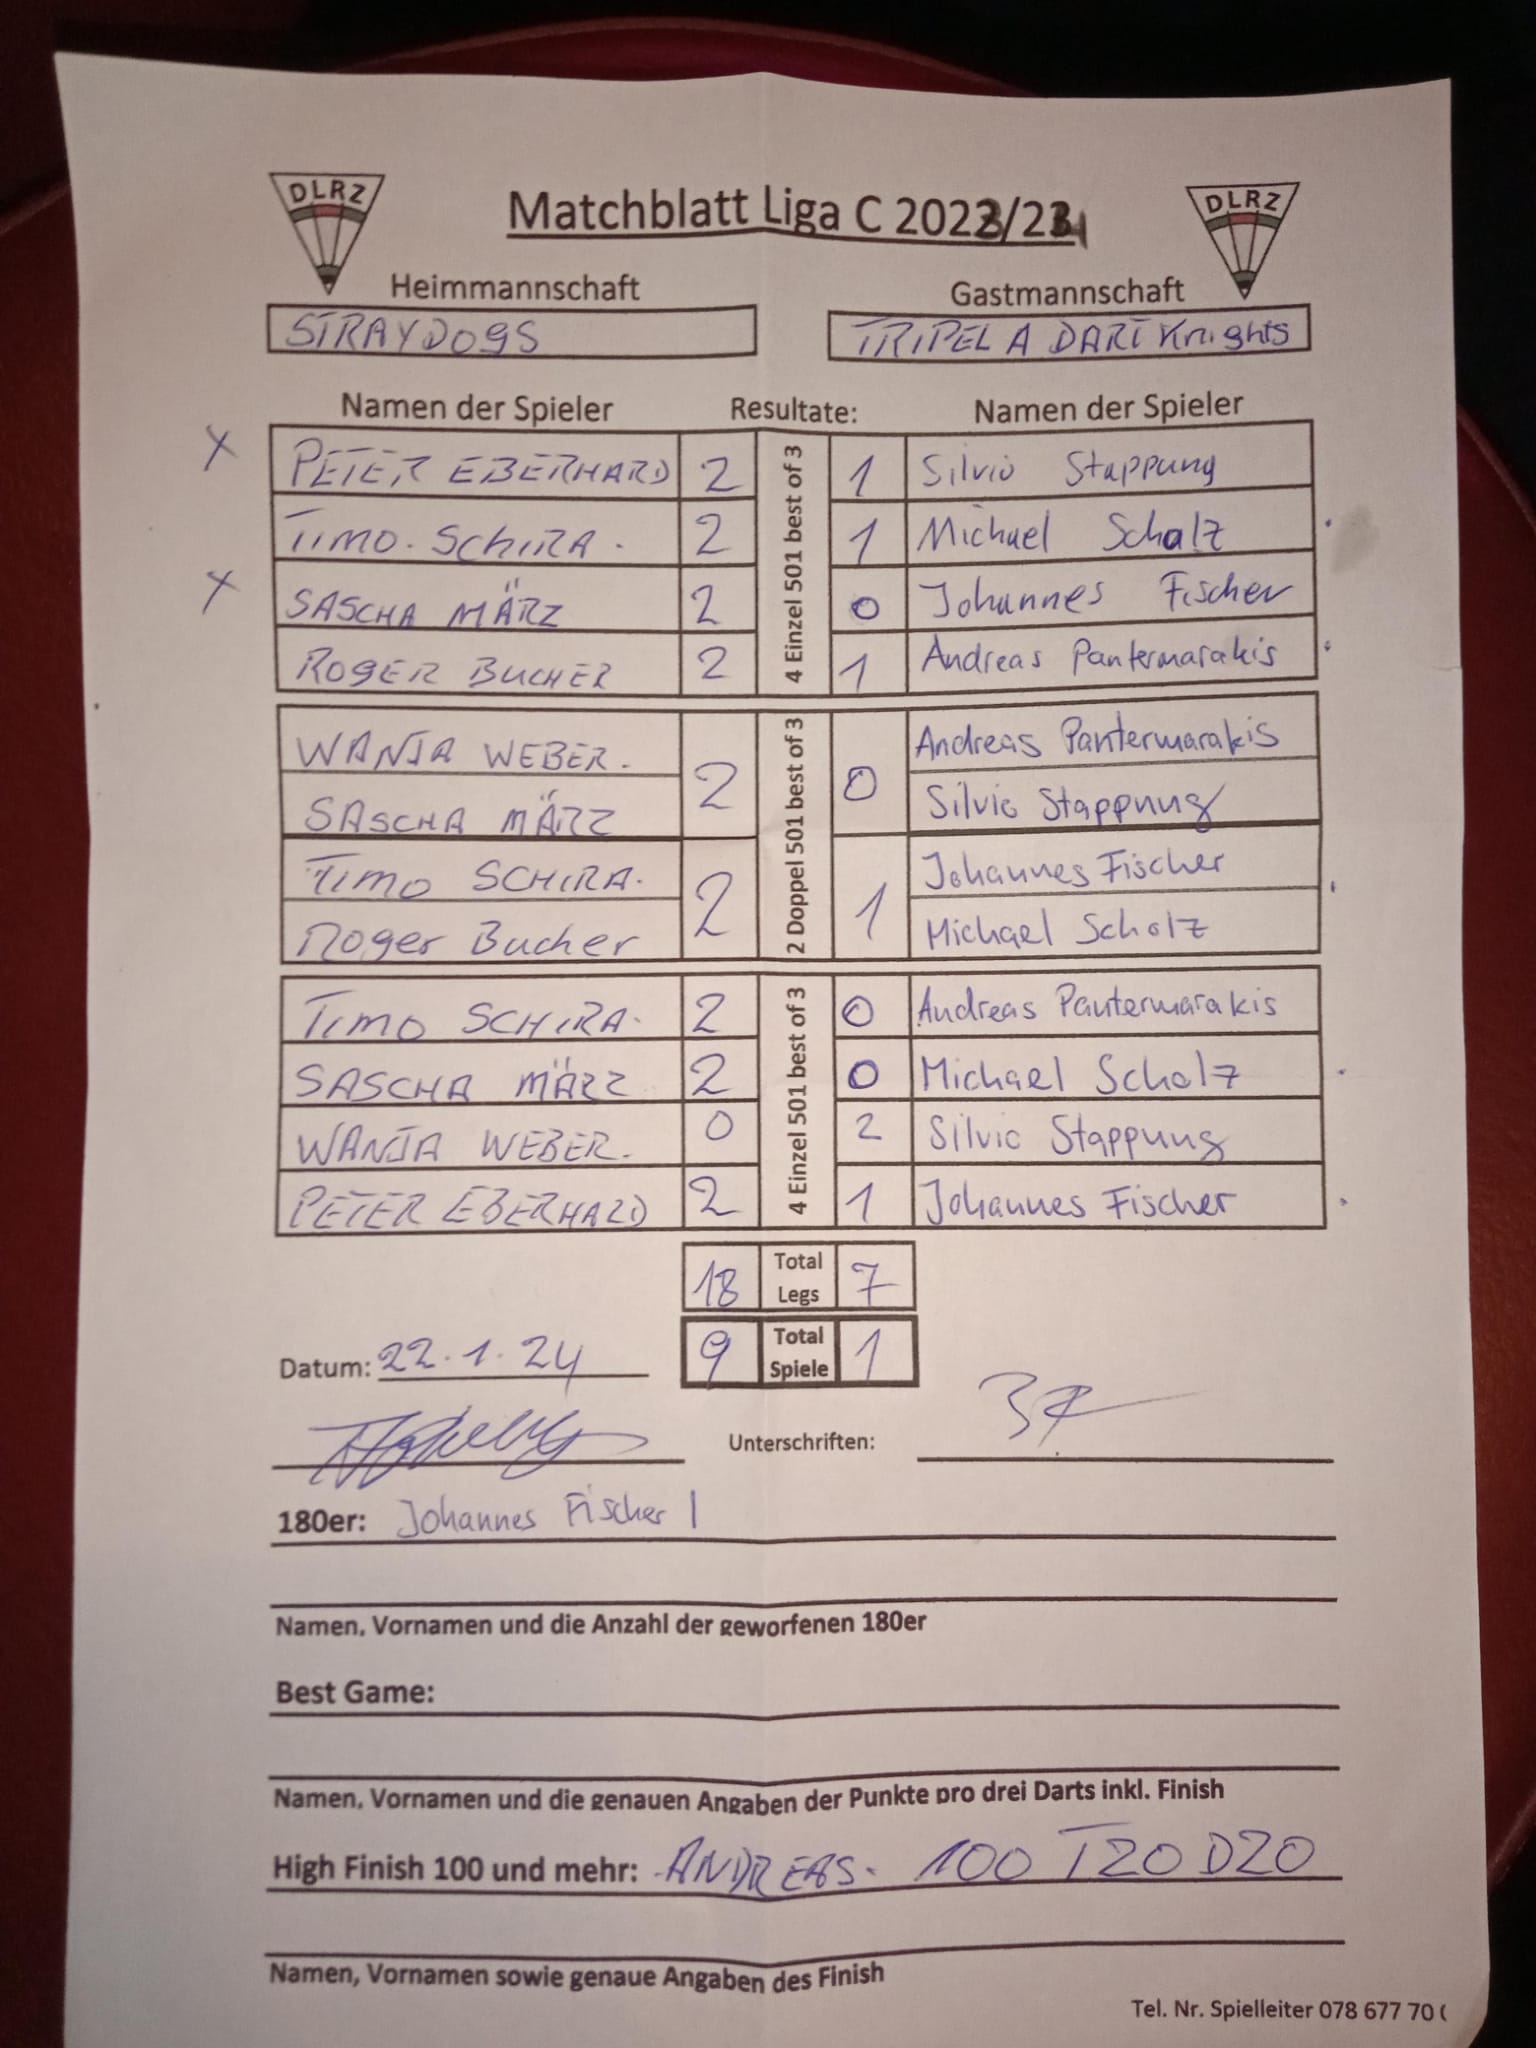 DLRZ DLRZ
Matchblatt Liga C 2023/24
Heimmannschaft Gastmannschaft
STRAYDOGS TRIPEL A DART Knights
Namen der Spieler Resultate: Namen der Spieler
X PETER EBERHARD 2 1 Silvio Stappung
TIMO. SCHIRA. 2 1 Michael Scholz
X SASCHA MÄRZ 2 0 Johannes Fischer
ROGER BUCHER 2 1 Andreas Pantermarakis
4 Einzel 501 best of 3
WANJA WEBER. Andreas Pantermarakis
2 0
SASCHA MÄRZ Silvio Stappung
TIMO SCHIRA. Johannes Fischer
2 1
Roger Bucher Michael Scholz
2 Doppel 501 best of 3
TIMO SCHIRA. 2 0 Andreas Pantermarakis
SASCHA MÄRZ 2 0 Michael Scholz
WANJA WEBER. 0 2 Silvio Stappung
PETER EBERHARD 2 1 Johannes Fischer
4 Einzel 501 best of 3
18 Total Legs 7
Datum: 22.1.24 9 Total Spiele 1
Unterschriften:
180er: Johannes Fischer 1
Namen, Vornamen und die Anzahl der geworfenen 180er
Best Game:
Namen, Vornamen und die genauen Angaben der Punkte pro drei Darts inkl. Finish
High Finish 100 und mehr: ANDREAS. 100 T20 D20
Namen, Vornamen sowie genaue Angaben des Finish
Tel. Nr. Spielleiter 078 677 70